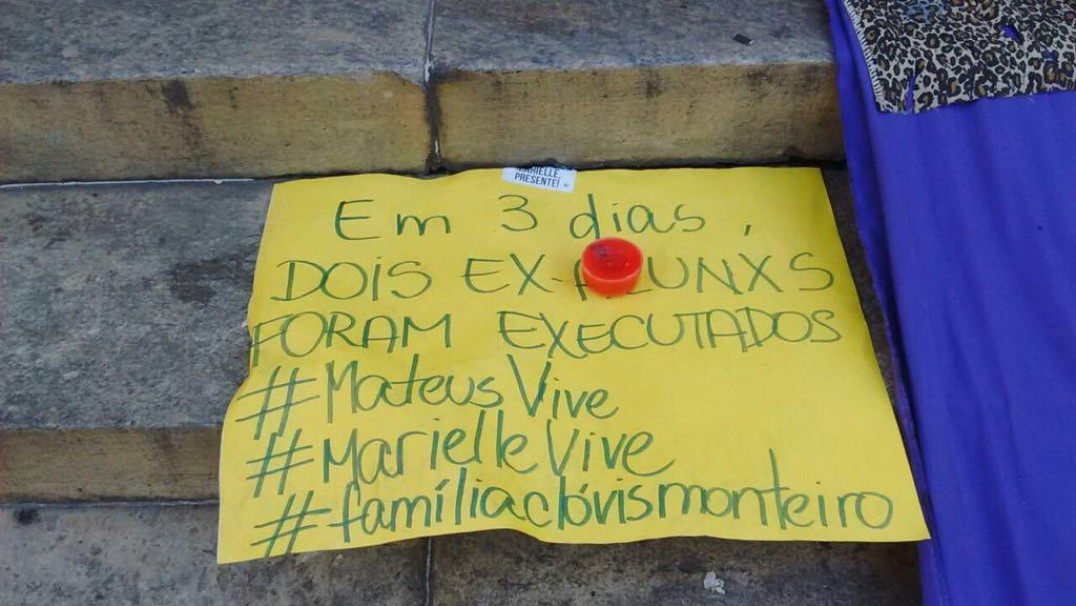 MARIELLE,
PRESENTE!
Em 3 dias,
DOIS EX-ALUNXS
FORAM EXECUTADOS
#MateusVive
#MarielleVive
#famíliaclóvismonteiro